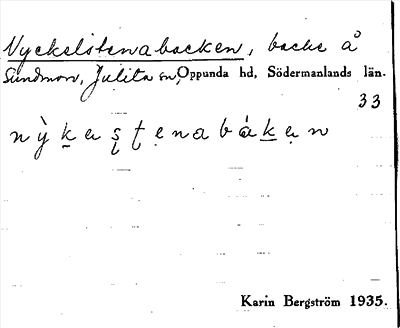 Nyckelstenabacken, backe å
Sundmon, Julita sn, Oppunda hd, Södermanlands län.
33
nỳḵeʂʈẹnabáḵẹn
Karin Bergström 1935.